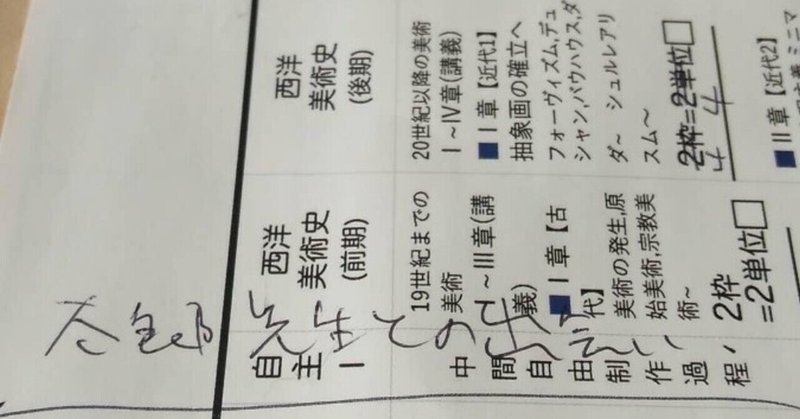 自
主
I
中
間
自
由
制
作
過
程
西洋
美術史
(前期)
19世紀までの
美術
I～III章(講
義)
■I章【古
代】
美術の発生,原
始美術,宗教美
術～
2枠
=2単位□
西洋
美術史
(後期)
20世紀以降の美術
I～IV章(講義)
■I章【近代1】
抽象画の確立へ
フォーヴィズム,デュ
シャン,バウハウス,ダ
ダ～ シュルレアリ
スム～
2枠=2単位□
4 4
■II章【近代2】